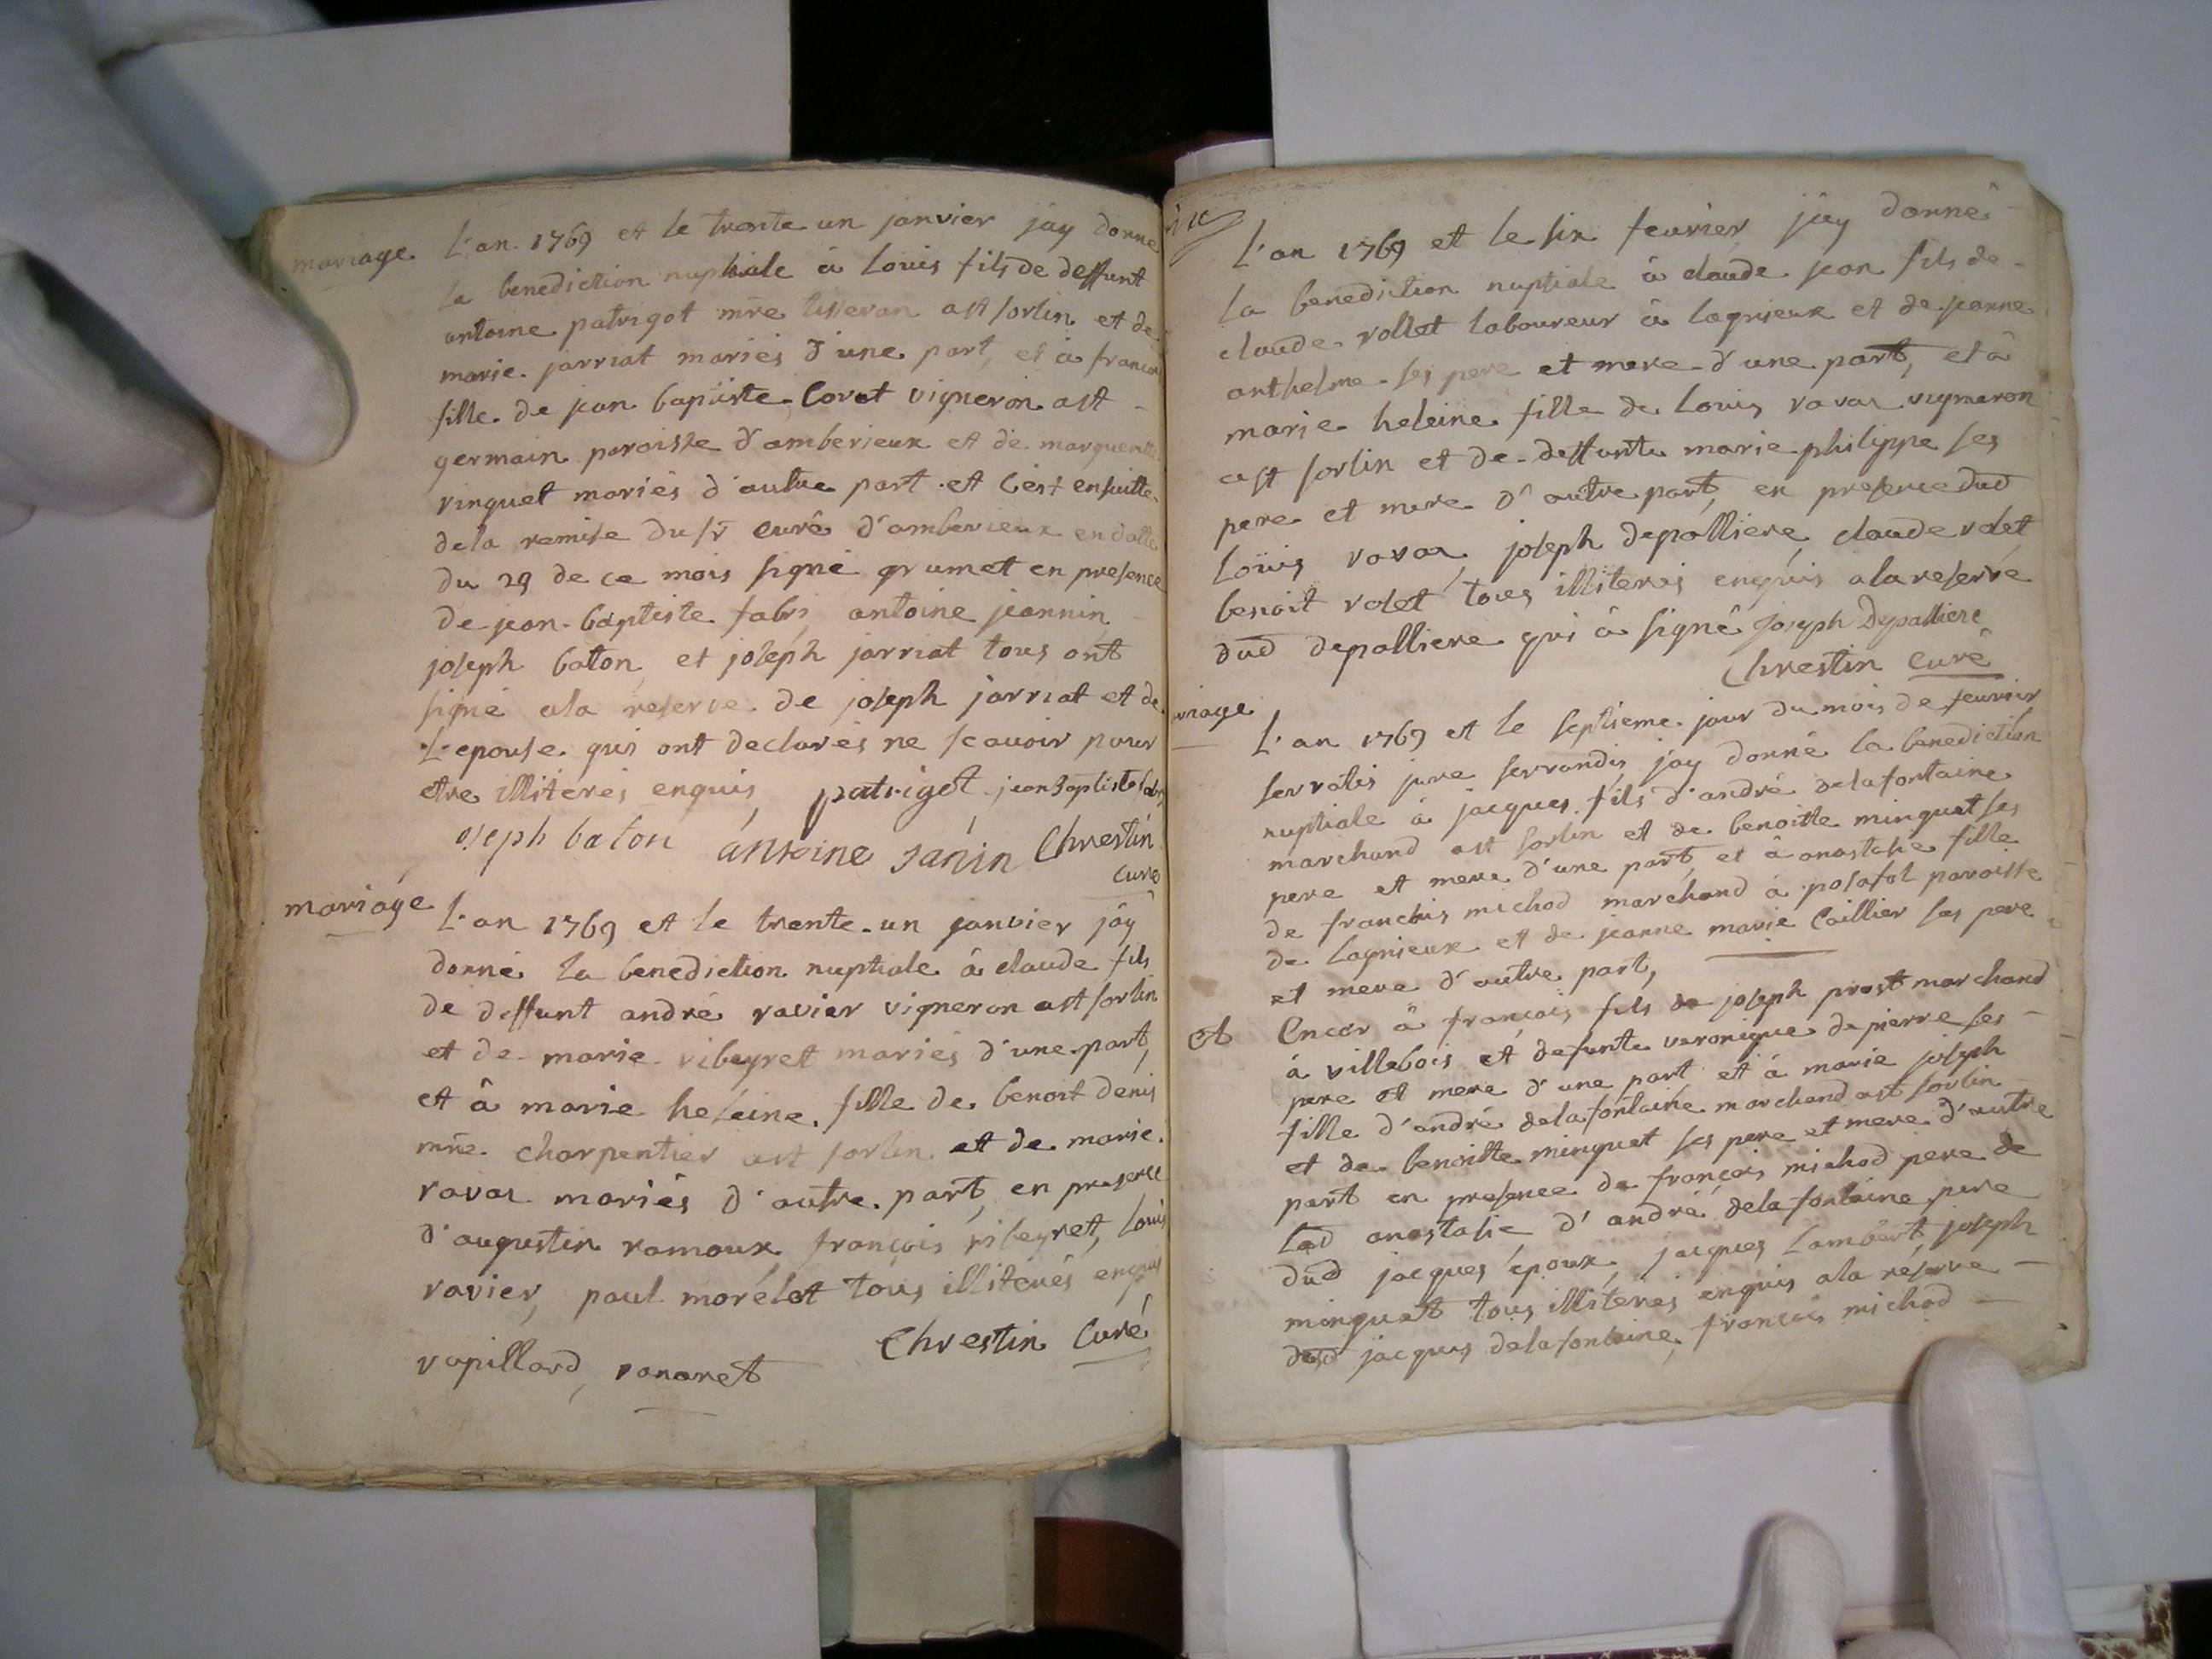 mariage L'an 1769 et le trente un janvier jay donné
la benediction nuptiale à Louis fils de deffunt
antoine patrigot mre tisseran ast sorlin et de
marie jarriat mariés d'une part, et à
fille de jean baptiste Corot vigneron ast
germain paroisse d'amberieux et de marguerite
vinguet mariés d'autre part et c'est ensuitte
dela remise du sr curé d'amberieux en datte
du 29 de ce mois signé grumet en presence
de jean-baptiste fabri, antoine jeannin
joseph baton, et joseph jarriat tous ont
signé ala reserve de joseph jarriat et de
L'epouse qui ont declarés ne scavoir pour
etre illiterés enquis, patrigot jean baptiste fabri
oseph baton antoine janin Chrestin
curé
mariage L'an 1769 et le trente-un janvier jáy
donné la benediction nuptiale à claude fils
de deffunt andré ravier vigneron ast sorlin
et de marie ribeyret mariés d'une part,
et à marie heleine fille de benoit denis
mre charpentier ast sorlin et de marie
ravar mariés d'autre part, en presence
d'augustin ramoux, françois ribeyret, louis
ravier, paul morélet tous illiterés enquis
Chrestin Curé
vapillard, vanaret
L'an 1769 et le six feuvrier jáy donné
la benediction nuptiale à claude jean fils de
claude rollet laboureur à lagnieux et de jeanne
anthelme ses pere et mere d'une part, et à
marie heleine fille de Louis ravar vigneron
ast sorlin et de deffunte marie philippe ses
pere et mere d'autre part, en presence dud
Loüis ravar, joseph depalliere, claude rolet
benoit rolet tous illiterés enquis ala reserve
dud depalliere qui à signé joseph Depalliere
Chrestin curé
riage
L'an 1769 et le septieme jour du mois de feuvrier
servatis jure servandis jáy donné la benediction
nuptiale à jacques fils d'andré delafontaine
marchand ast sorlin et de benoitte minguet ses
pere et mere d'une part, et à anastasie fille
de francois michod marchand à posafol paroisse
de lagnieux et de jeanne marie Caillier ses pere
et mere d'autre part,
et Encor à françois fils de joseph prost marchand
à villebois et defunte veronique depierre ses
pere et mere d'une part et à marie joseph
fille d'andré delafontaine marchand ast sorlin
et de benoitte minguet ses pere et mere d'autre
part en presence de françois michod pere de
Lad anastasie d'andré delafontaine pere
dud jacques époux, jacques Lambert, joseph
minguet tous illiterés enquis ala reserve
dud jacques delafontaine, françois michod